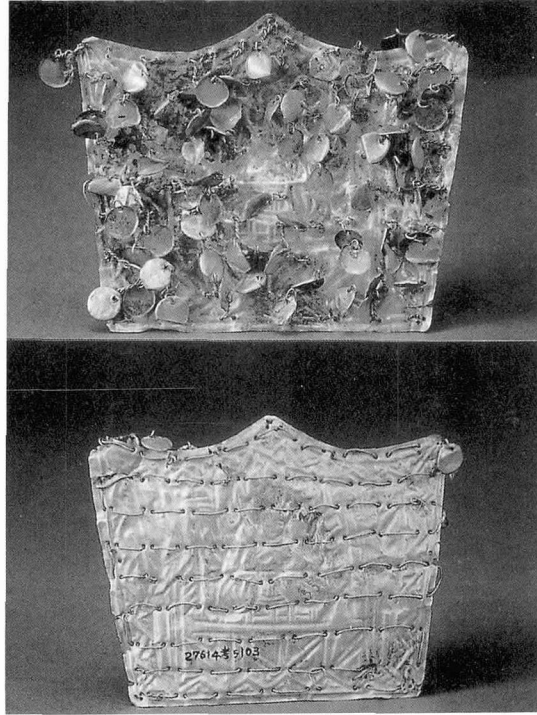 27614考5103